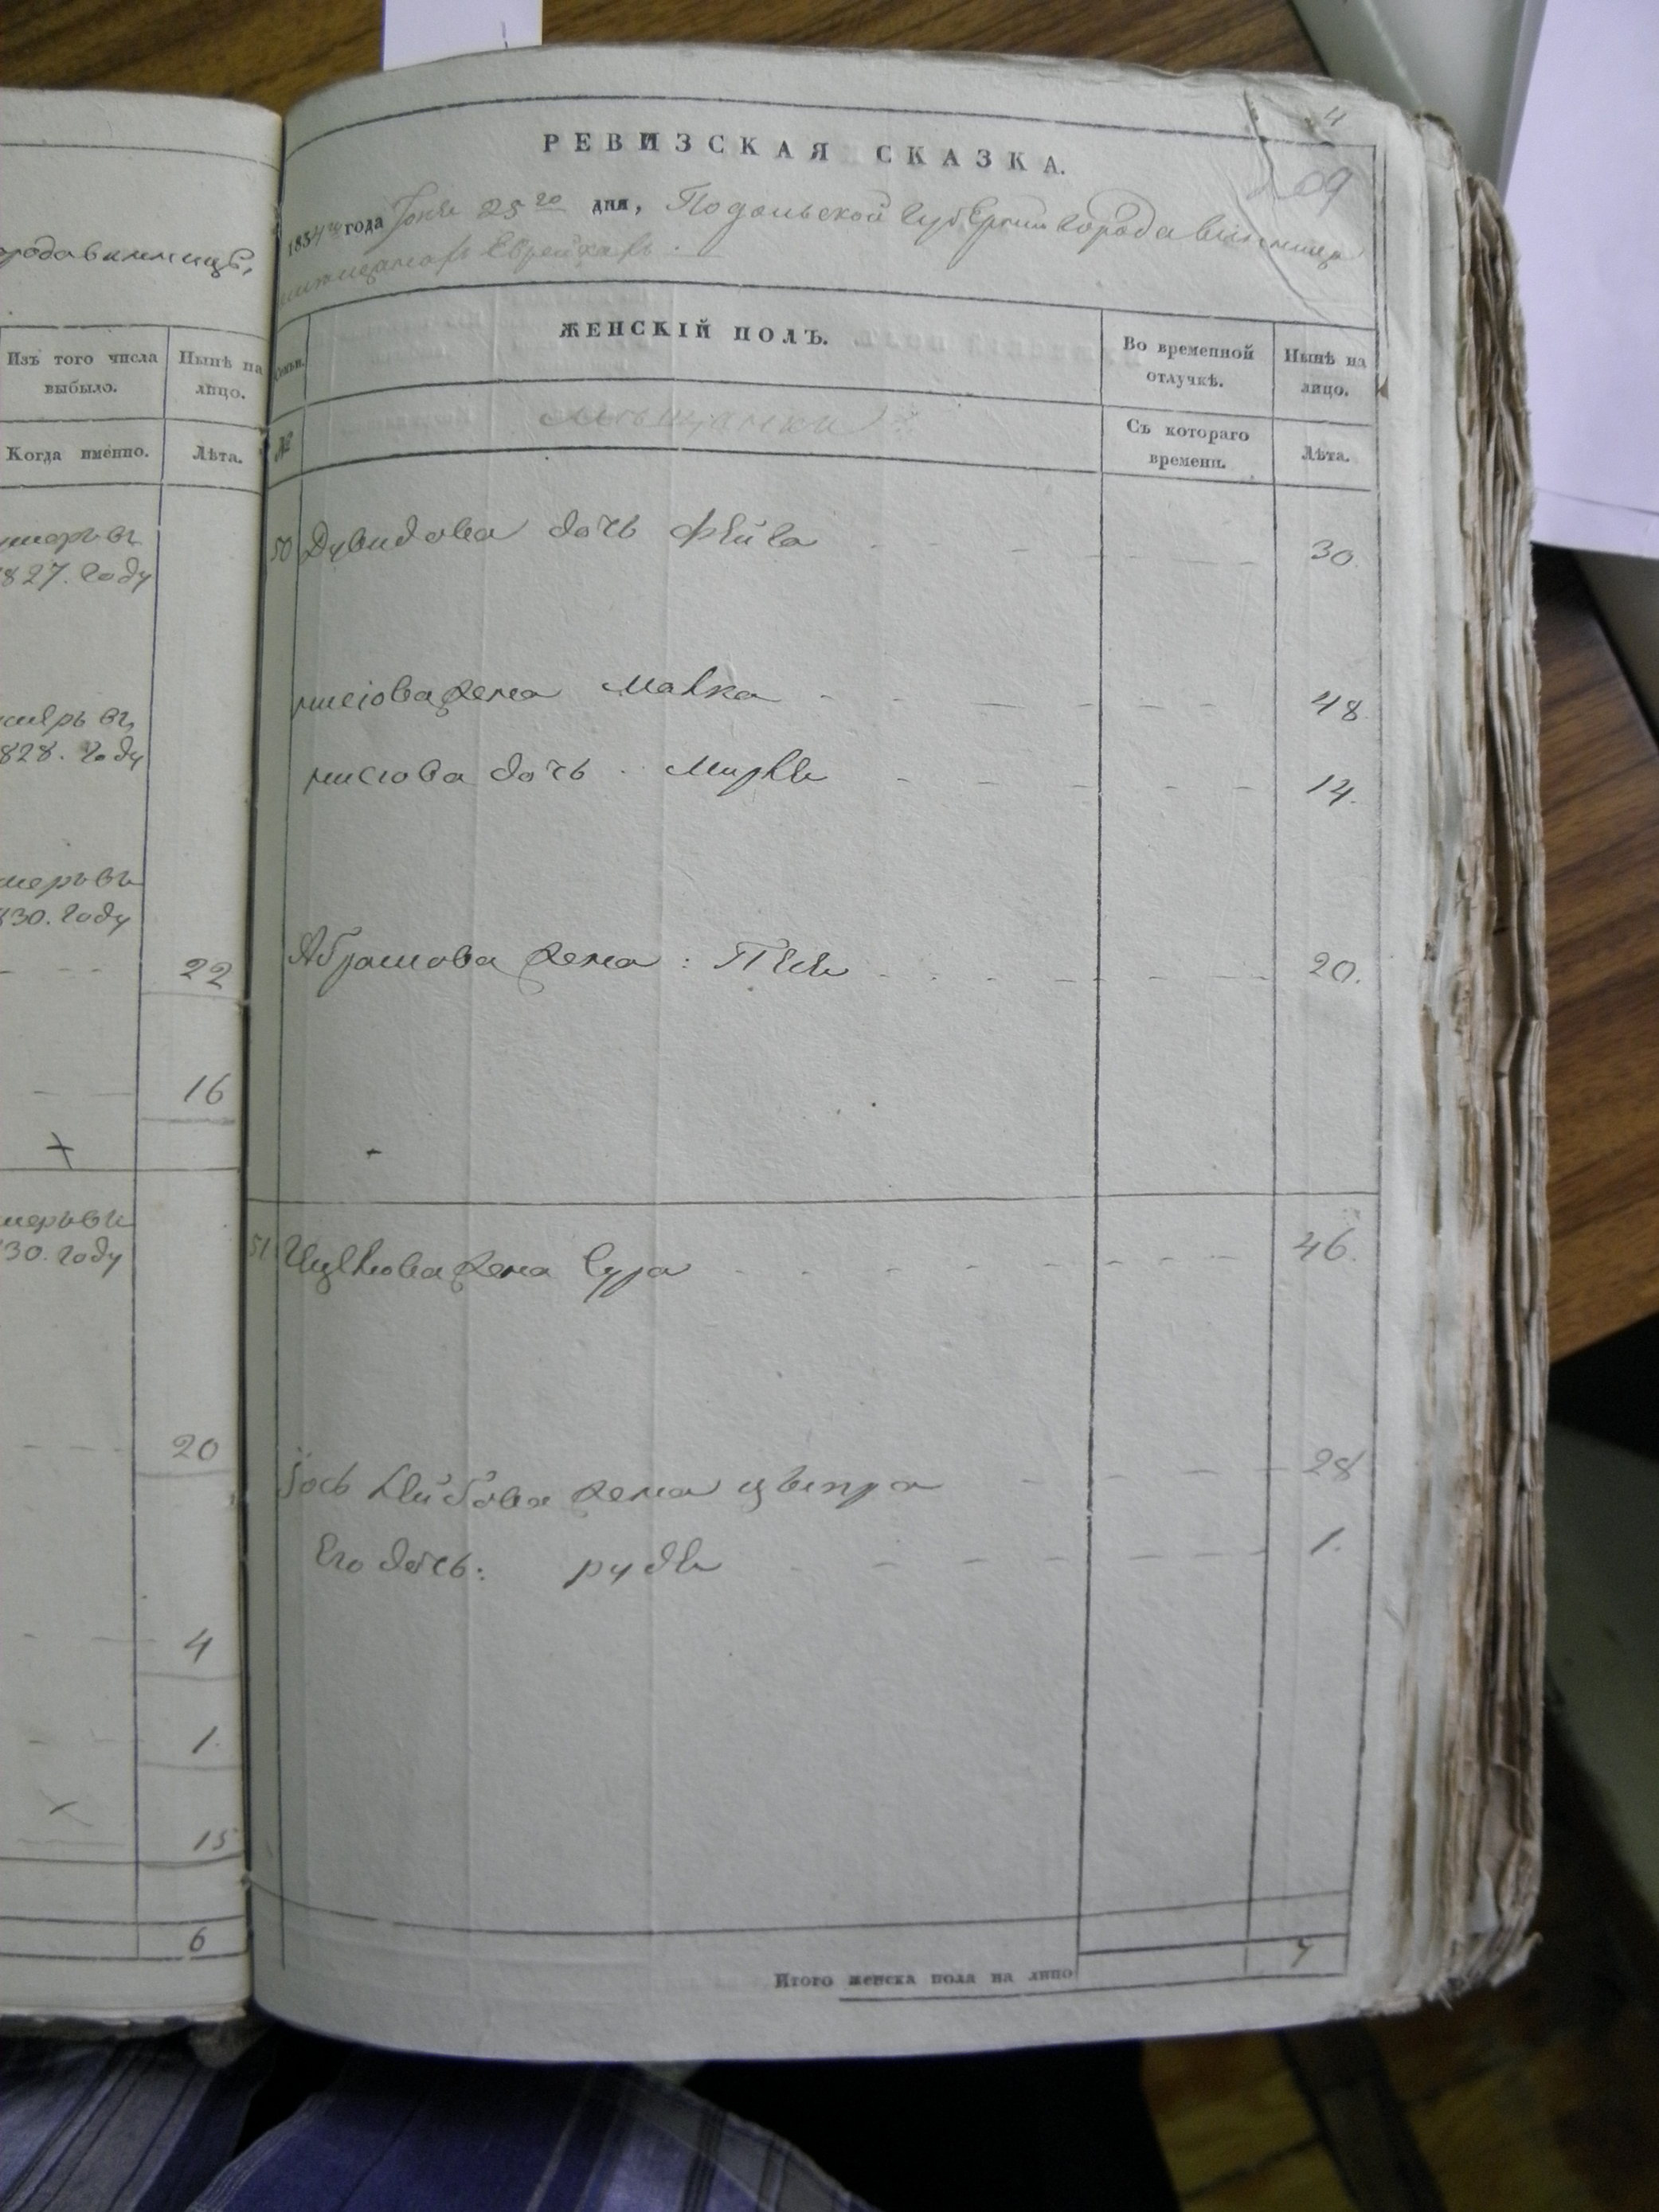 4
РЕВИЗСКАЯ СКАЗКА.
209
1834го года Іюня 25го дня, Подольской Губерніи города винницы
мѣщанахъ Евреяхъ.
орода винницы,
Изъ того числа выбыло.
Нынѣ на лицо.
Когда именно.
Лѣта.
умеръ въ
827. году
умеръ въ
828. году
умеръ въ
830. году
22
16
+
умеръ въ
30. году
20
4
1.
15
6
Семьи.
ЖЕНСКІЙ ПОЛЪ.
Во временной отлучкѣ.
Нынѣ на лицо.
№
мѣщанки
Съ котораго времени.
Лѣта.
50 Дувидова дочь Фейга 30.
нисіова жена Малка 48.
нисіова дочь Мирля 14.
Абрамова жена: Песя 20.
51 жена Сура 46.
Іось Лейбова жена цвитра 28
Его дочь: рудля 1.
Итого женска пола на лицо 7